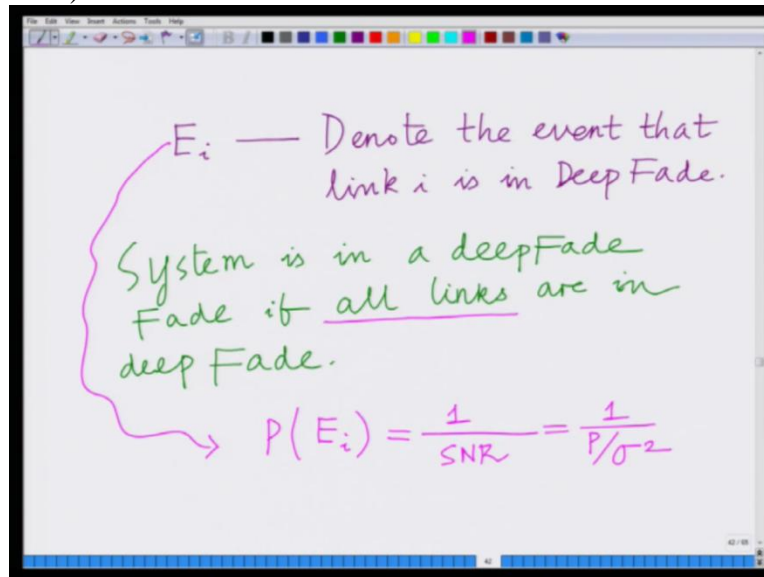 File Edit View Insert Actions Tools Help
E_i — Denote the event that
link i is in Deep Fade.
System is in a deepFade
Fade if all links are in
deep Fade.
P(E_i) = 1/SNR = 1/(P/σ²)
42 / 65
42